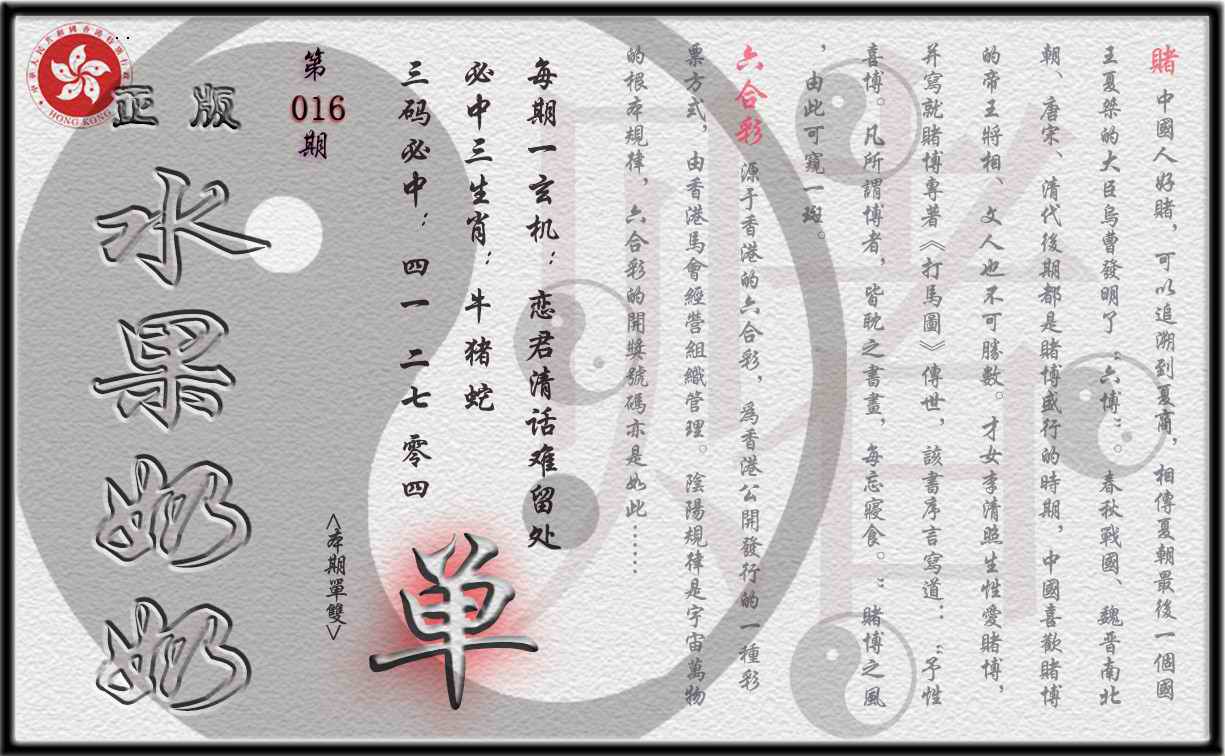 賭 中國人好賭，可以追溯到夏商，相傳夏朝最後一個國
王夏桀的大臣烏曹發明了“六博”。春秋戰國、魏晋南北
朝、唐宋、清代後期都是賭博盛行的時期，中國喜歡賭博
的帝王將相、文人也不可勝數。才女李清照生性愛賭博，
并寫就賭博專著《打馬圖》傳世，該書序言寫道：“予性
喜博。凡所謂博者，皆耽之書畫，每忘寢食。”賭博之風
，由此可窺一斑。
六合彩 源于香港的六合彩，爲香港公開發行的一種彩
票方式，由香港馬會經營組織管理。陰陽規律是宇宙萬物
的根本規律，六合彩的開獎號碼亦是如此……
每期一玄机：恋君清话难留处
必中三生肖：牛猪蛇
三码必中：四一 二七 零四
单
<本期單雙>
第
016
期
正版
水果奶奶
中華人民共和國香港特別行政區
HONG KONG